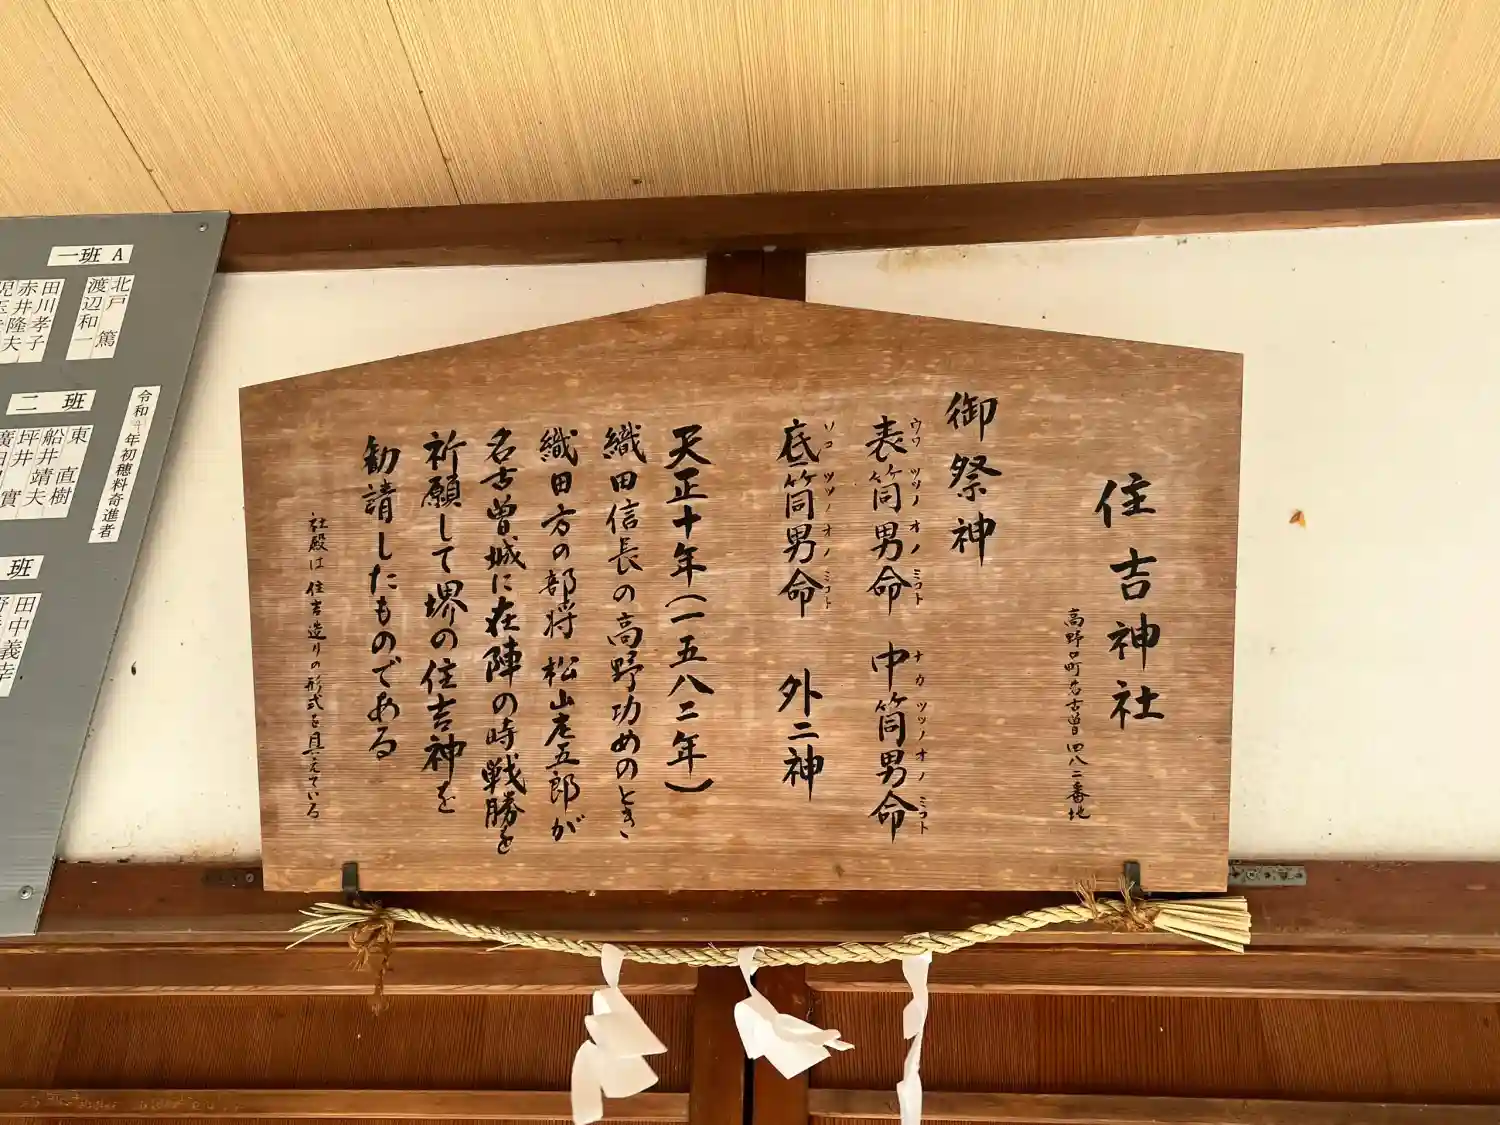 住吉神社
高野口町名古曽四八二番地
御祭神
表筒男命 中筒男命
ウワ ツツノ オノ ミコト ナカ ツツノ オノ ミコト
底筒男命 外二神
ソコ ツツノ オノ ミコト
天正十年(一五八二年)
織田信長の高野功めのとき、
織田方の部将 松山庄五郎が
名古曽城に在陣の時戦勝を
祈願して堺の住吉神を
勧請したものである
社殿は住吉造りの形式を具えている
令和 年初穂料奇進者
一班 A
北戸 篤
渡辺和一
田川孝子
赤井隆夫
児玉
二 班
東 直樹
船井靖夫
坪井 實
班
田中義幸